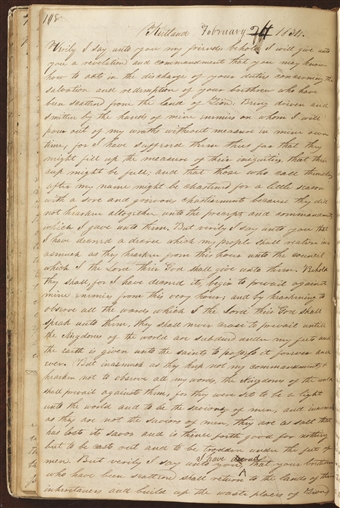 108
Kirtland February 24 1834.
Verily I say unto you my friends behold I will give unto
you a revelation and commandment that you may know
how to act in the discharge of your duties concerning the
salvation and redemption of your brethren who have
been scattered from the land of Zion. Being driven and
smitten by the hands of mine enemies on whom I will
pour out my wrath without measure in mine own
time, for I have suffered them thus far that they
might fill up the measure of their iniquities that their
cup might be full, and that those who call themselves
after my name might be chastened for a little season
with a sore and grievous chastisement because they did
not hearken altogether unto the precepts and commandments
which I gave unto them. But verily I say unto you that
I have decreed a decree which my people shall realize in
asmuch as they hearken from this hour unto the counsel
which I the Lord their God shall give unto them. Behold
they shall, for I have decreed it, begin to prevail against
mine enemies from this very hour, and by hearkening to
observe all the words which I the Lord their God shall
speak unto them, they shall never cease to prevail until
the kingdoms of the world are subdued under my feet and
the earth is given unto the saints to possess it forever and
ever. But inasmuch as they keep not my commandments &
hearken not to observe all my words, the kingdoms of the world
shall prevail against them, for they were set to be a light
unto the world and to be the saviours of men, and inasmuch
as they are not the saviours of men, they are as salt that
has lost its savor and is thenceforth good for nothing
but to be cast out and to be trodden under the feet of
men. But verily I say unto you, I have decreed that your brethren
who have been scattered shall return to the lands of their
inheritances and build up the waste places of Zion